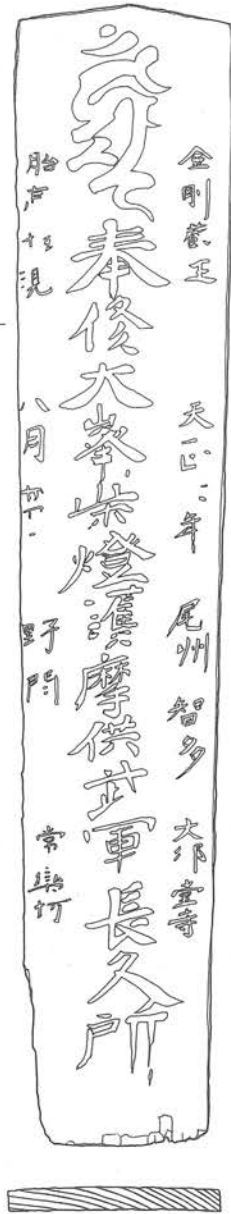 金剛蔵王 天正二年 尾州 智多 大御堂寺
奉修大峯柴燈護摩供武軍長久所
胎 権現 八月 野間 常楽坊